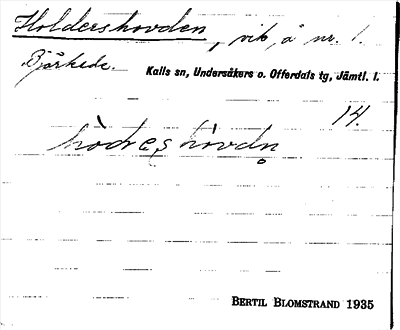 Holdershovden, vik, å nr. 1.
Björkede.
Kalls sn, Undersåkers o. Offerdals tg, Jämtl. l.
14.
BERTIL BLOMSTRAND 1935